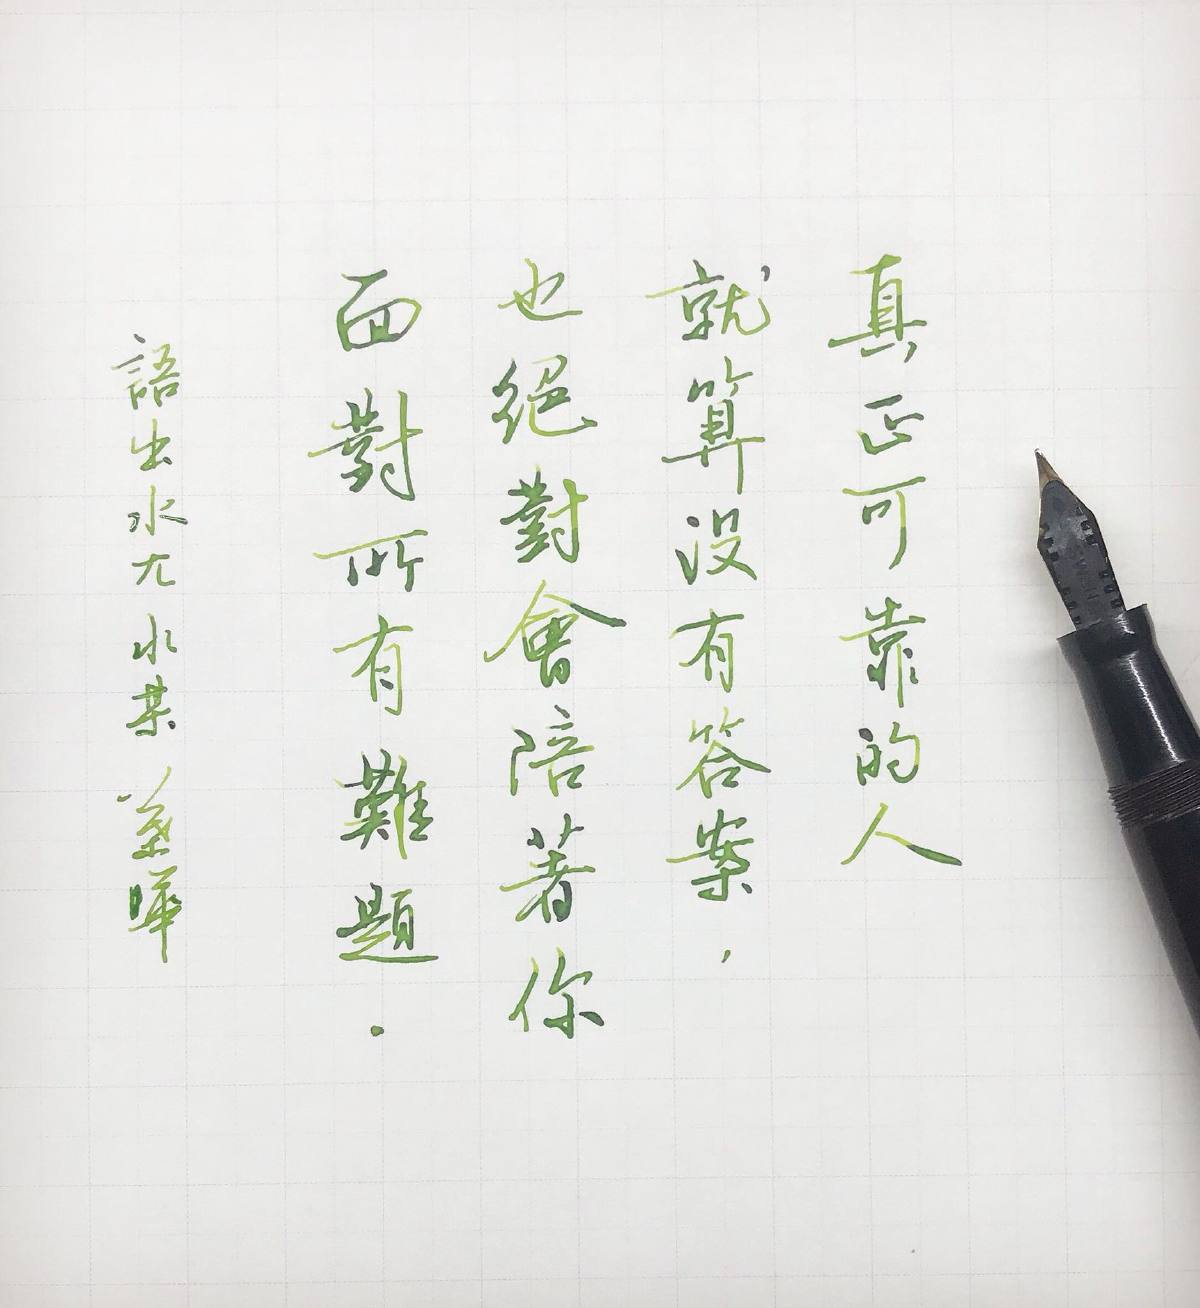 真正可靠的人
就算沒有答案,
也絕對會陪著你
面對所有難題.
語出水尢水某 葉曄